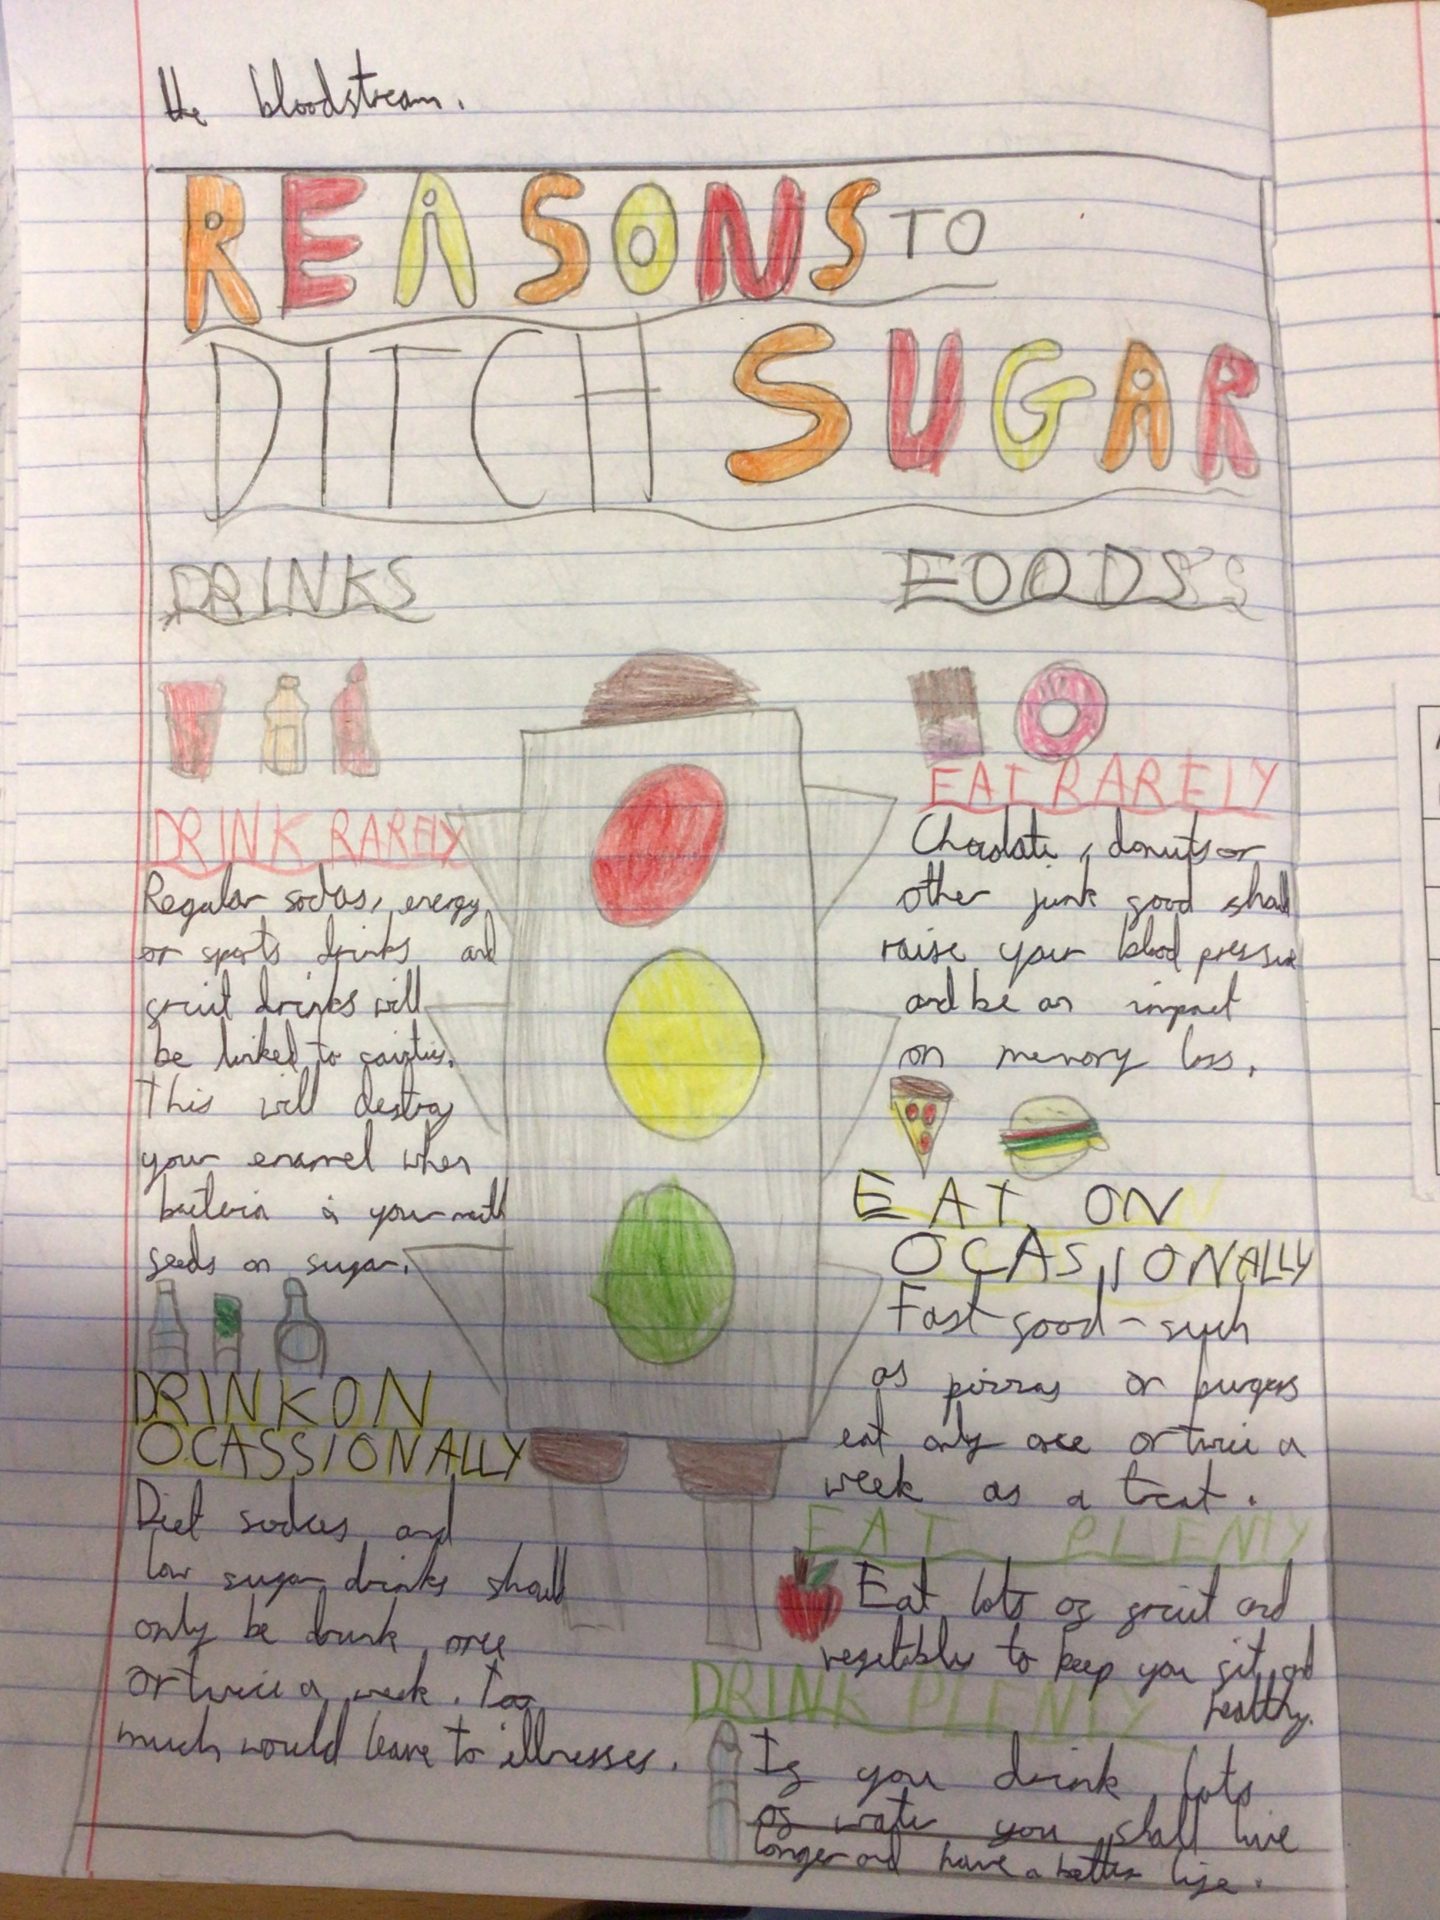 the bloodstream.
REASONS TO
DITCH SUGAR
DRINKS
DRINK RARELY
Regular sodas, energy
or sports drinks and
fruit drinks will
be linked to cavities.
This will destroy
your enamel when
bacteria in your mouth
feeds on sugar.
DRINK ON
OCASSIONALLY
Diet sodas and
low sugar drinks shall
only be drunk once
or twice a week. Too
much would leave to illnesses.
FOODS
EAT RARELY
Chocolate, donuts or
other junk food shall
raise your blood pressure
and be an impact
on memory loss.
EAT ON
OCASIONALLY
Fast food - such
as pizzas or burgers
eat only once or twice a
week as a treat.
EAT PLENTY
Eat lots of fruit and
vegetables to keep you fit and
healthy.
DRINK PLENTY
If you drink lots
of water you shall live
longer and have a better life.